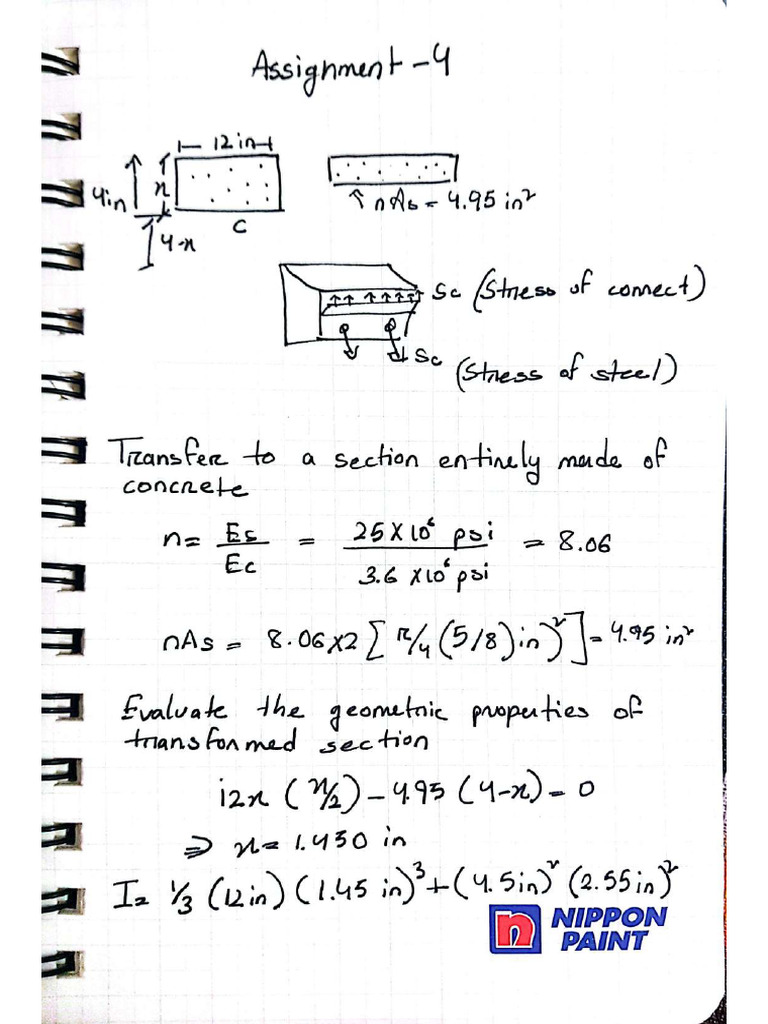 Assignment-4
12 in
4in
x
4-x
C
↑ nAs = 4.95 in²
Sc (Stress of connect)
Sc (Stress of steel)
Transfer to a section entirely made of
concrete
n= Es/Ec = 25×10⁶ psi / 3.6 ×10⁶ psi = 8.06
nAs = 8.06×2 [π/4 (5/8)in)²] = 4.95 in²
Evaluate the geometric properties of
transformed section
12x (x/2) - 4.95 (4-x) = 0
⇒ x= 1.450 in
I= 1/3 (12in) (1.45 in)³ + (4.5in)² (2.55in)²
n NIPPON
PAINT